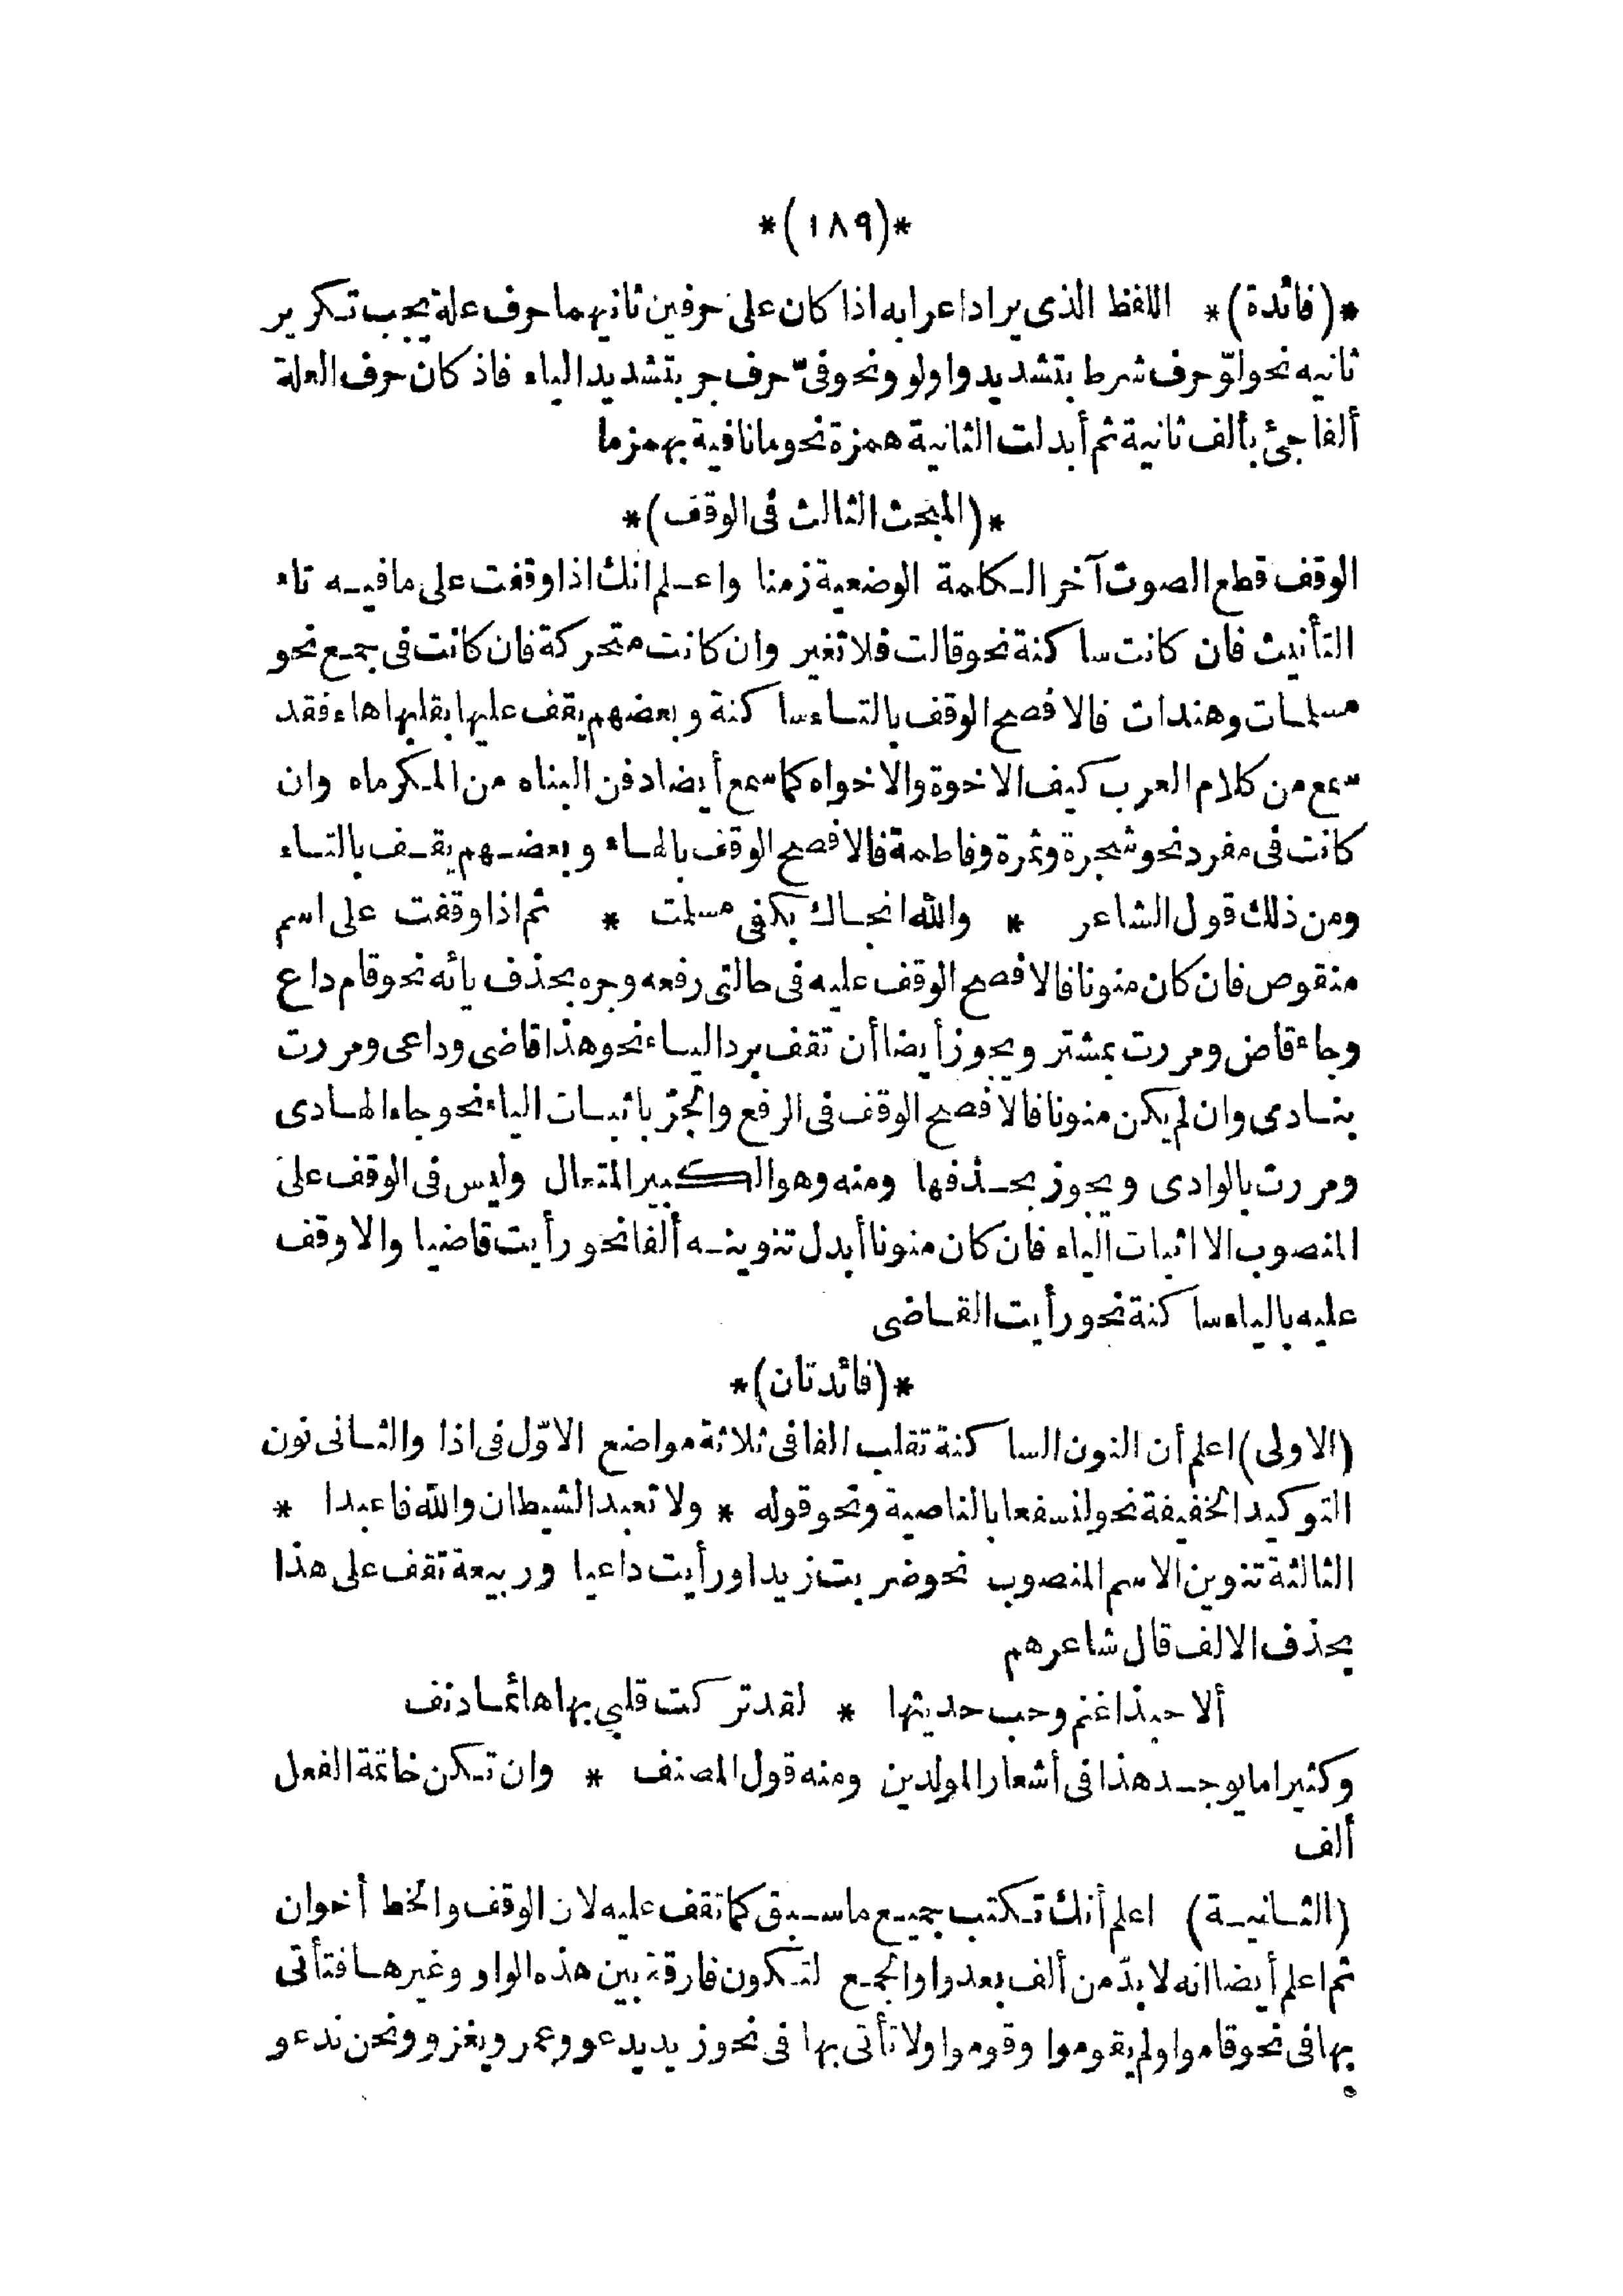 *(١٨٩)*
*(فائدة)* اللفظ الذى يراد اعرابه اذا كان على حرفين ثانيهما حرف علة يجب تكرير
ثانيه نحو لوّ حرف شرط بتشديد واو لو ونحو فىّ حرف جر بتشديد الياء فاذ كان حرف العلة
ألفا جئ بألف ثانية ثم أبدلت الثانية همزة نحو ما نافية بهمز ما
*(المبحث الثالث فى الوقف)*
الوقف قطع الصوت آخر الكلمة الوضعية زمنا واعلم انك اذا وقفت على ما فيه تاء
التأنيث فان كانت ساكنة نحو قالت فلا تغير وان كانت متحركة فان كانت فى جمع نحو
مسلمات وهندات فالافصح الوقف بالتاء ساكنة وبعضهم يقف عليها بقلبها هاء فقد
سمع من كلام العرب كيف الاخوة والاخواه كما سمع أيضا دفن البناه من المكرماه وان
كانت فى مفرد نحو شجرة وثمرة وفاطمة فالافصح الوقف بالهاء وبعضهم يقف بالتاء
ومن ذلك قول الشاعر * والله انجاك بكفى مسلمت * ثم اذا وقفت على اسم
منقوص فان كان منونا فالافصح الوقف عليه فى حالتى رفعه وجره بحذف يائه نحو قام داع
وجاء قاض ومررت بمشتر ويجوز أيضا أن تقف برد الياء نحو هذا قاضى وداعى ومررت
بنادى وان لم يكن منونا فالافصح الوقف فى الرفع والجرّ باثبات الياء نحو جاء الهادى
ومررت بالوادى ويجوز بحذفها ومنه وهو الكبير المتعال وليس فى الوقف على
المنصوب الا اثبات الياء فان كان منونا أبدل تنوينه ألفا نحو رأيت قاضيا والا وقف
عليه بالياء ساكنة نحو رأيت القاضى
*(فائدتان)*
(الاولى) اعلم أن النون الساكنة تقلب الفا فى ثلاثة مواضع الاوّل فى اذا والثانى نون
التوكيد الخفيفة نحو لنسفعا بالناصية ونحو قوله * ولا تعبد الشيطان والله فاعبدا *
الثالثة تنوين الاسم المنصوب نحو ضربت زيدا ورأيت داعيا وربيعة تقف على هذا
بحذف الالف قال شاعرهم
ألا حبذا غنم وحب حديثها * لقد تركت قلبي بها هائما دنف
وكثيرا ما يوجد هذا فى أشعار المولدين ومنه قول المصنف * وان تكن خاتمة الفعل
ألف
(الثانية) اعلم أنك تكتب جميع ما سبق كما تقف عليه لان الوقف والخط أخوان
ثم اعلم أيضا انه لا بدّ من ألف بعد واو الجمع لتكون فارقة بين هذه الواو وغيرها فتأتى
بها فى نحو قاموا ولم يقوموا وقوموا ولا تأتى بها فى نحو زيد يدعو وعمر ويغزو ونحن ندعو